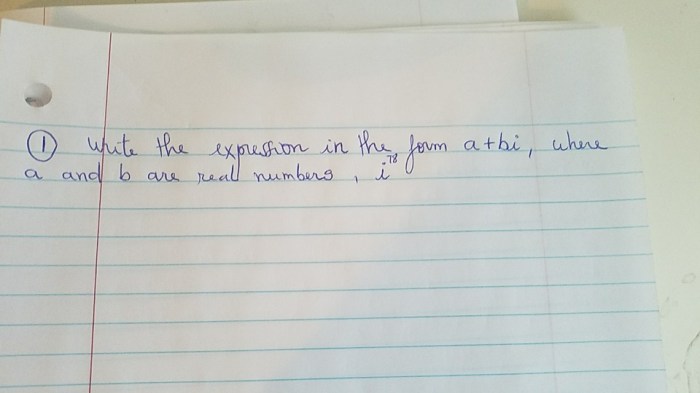 ① Write the expression in the form a+bi, where
a and b are real numbers, i⁷⁸